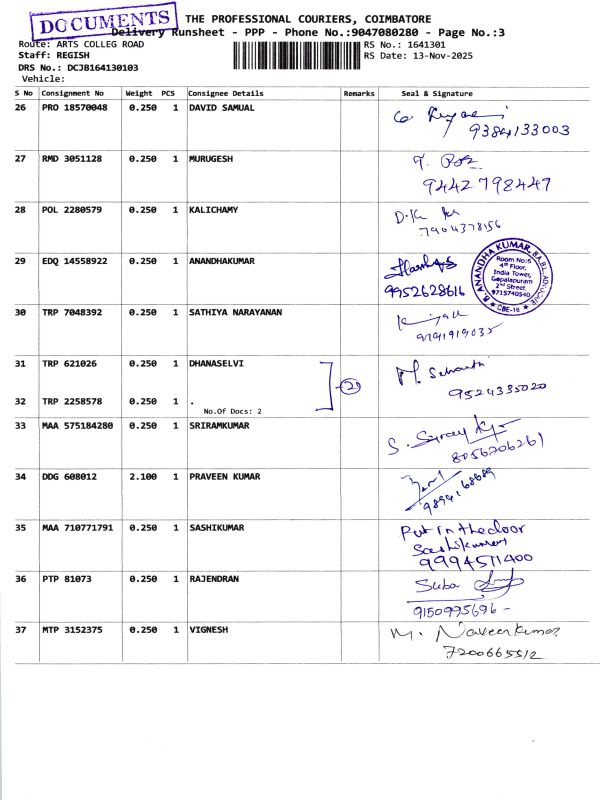 DOCUMENTS
THE PROFESSIONAL COURIERS, COIMBATORE
Delivery Runsheet - PPP - Phone No.:9047080280 - Page No.:3
Route: ARTS COLLEG ROAD RS No.: 1641301
Staff: REGISH RS Date: 13-Nov-2025
DRS No.: DCJB164130103
Vehicle:
S No Consignment No Weight PCS Consignee Details Remarks Seal & Signature
26 PRO 18570048 0.250 1 DAVID SAMUAL
9384133003
27 RMD 3051128 0.250 1 MURUGESH
9442798447
28 POL 2280579 0.250 1 KALICHAMY
7904378156
29 EDQ 14558922 0.250 1 ANANDHAKUMAR
9952628616
B. ANANDHA KUMAR, B.A.B.L, ADVOCATE
Room No:6
4th Floor,
India Tower,
Gopalapuram
2nd Street,
9715740540
CBE-18
30 TRP 7048392 0.250 1 SATHIYA NARAYANAN
9791919035
31 TRP 621026 0.250 1 DHANASELVI
9524335020
32 TRP 2258578 0.250 1 .
No.Of Docs: 2
2
33 MAA 575184280 0.250 1 SRIRAMKUMAR
8056706261
34 DDG 608012 2.100 1 PRAVEEN KUMAR
9894168689
35 MAA 710771791 0.250 1 SASHIKUMAR
Put in the door
Sashikumar
9994511400
36 PTP 81073 0.250 1 RAJENDRAN
Suba
9150995696 -
37 MTP 3152375 0.250 1 VIGNESH
M. Naveenkumar
7200665512